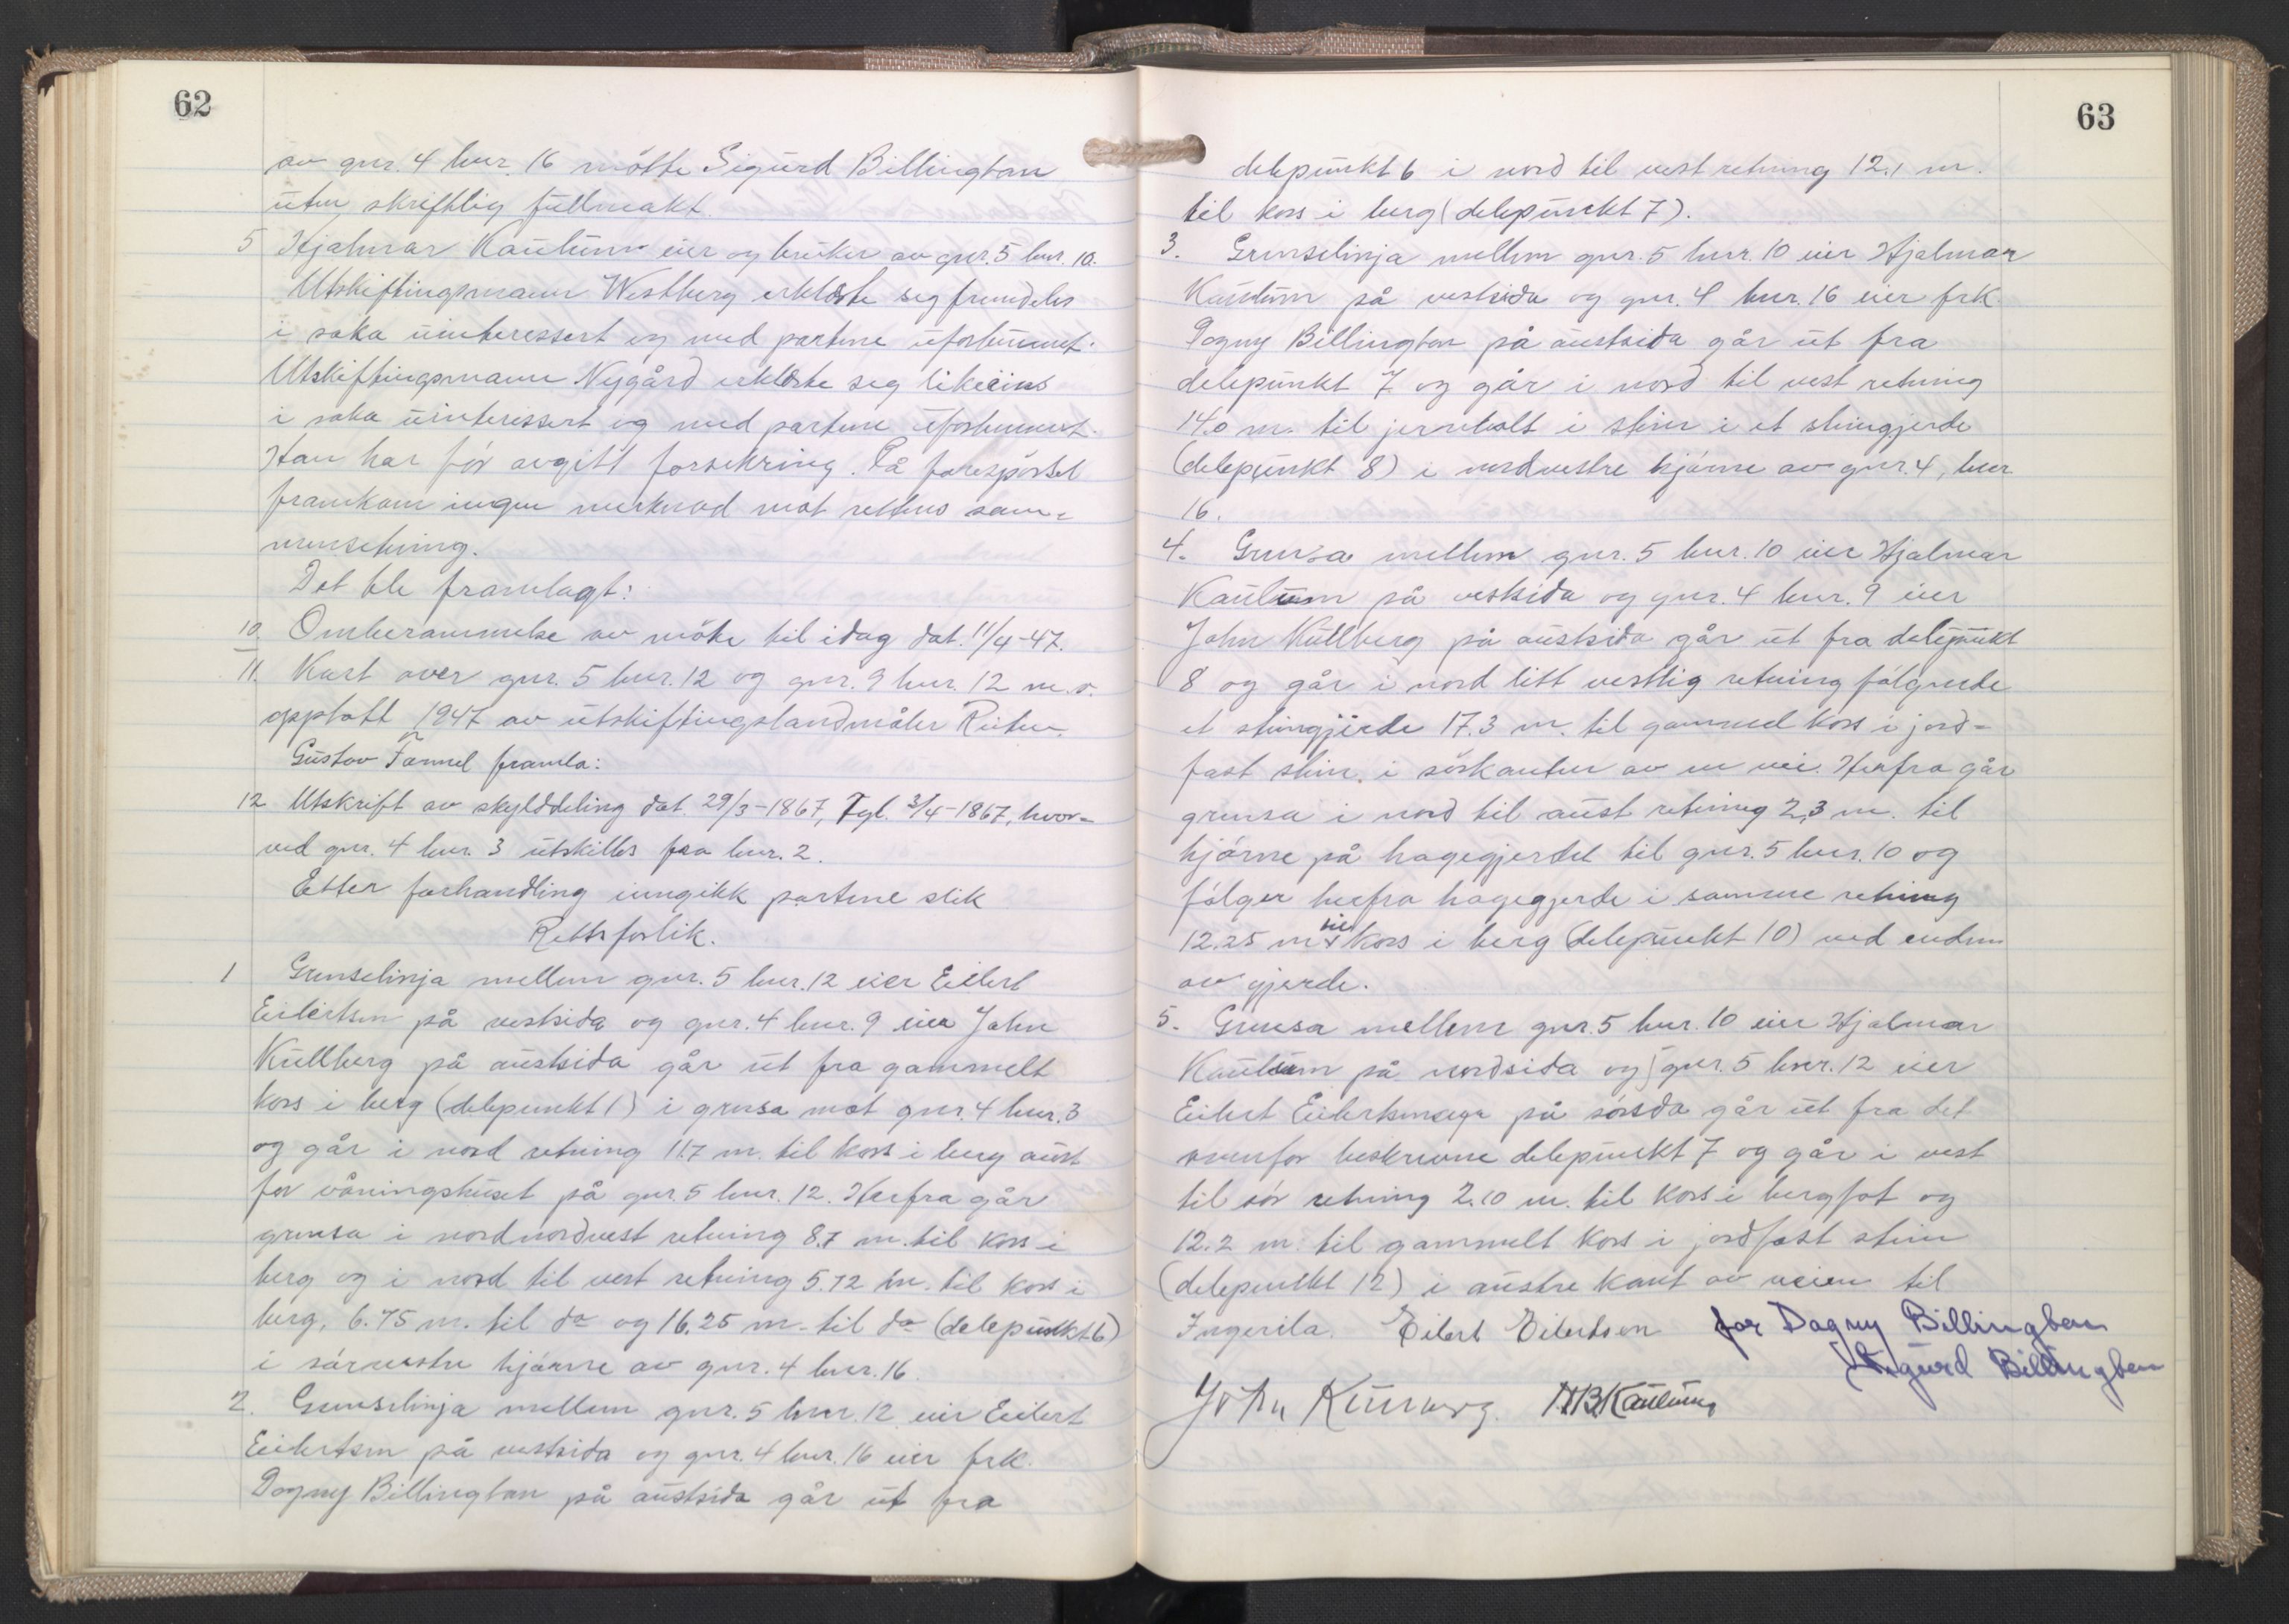 62
av gnr. 4 bnr. 16 møtte Sigurd Billington
uten skriftlig fullmakt.
5 Hjalmar Kaulum eier og bruker av gnr. 5 bnr. 10.
Utskiftingsmann Westberg erklærte seg fremdeles
i saka uinteressert og med partene ubestemmet.
Utskiftingsmann Nygård erklærte seg likeeins
i saka uinteressert og med partene
Han har før avgitt forsikring. På forespørsel
framkom ingen merknad mot rettens sam-
mensetning.
Det ble framlagt:
10. Omberammelse av møte til idag dat. 11/4-47.
11. Kart over gnr. 5 bnr. 12 og gnr. 9 bnr. 12 m.v.
opptatt 1947 av utskiftingslandmåler Ruten.
Gustav Fammel framla:
12 Utskrift av skylddeling dat. 29/3-1867, Tgl. 3/4-1867, hvor-
ved gnr. 4 bnr. 3 utskilles fra bnr. 2.
Etter forhandling inngikk partene slik
Rettsforlik.
1 Grenselinja mellem gnr. 5 bnr. 12 eier Eilert
Eilertsen på vestsida og gnr. 4 bnr. 9 eier John
Kullberg på austsida går ut fra gammelt
kors i berg (delepunkt 1) i grensa mot gnr. 4 bnr. 3
og går i nord retning 11.7 m. til kors i berg aust
for våningshuset på gnr. 5 bnr. 12. Herfra går
grensa i nordnordvest retning 8.7 m. til kors i
berg og i nord til vest retning 5.72 m. til kors i
berg, 6.75 m. til do og 16.25 m. til do (delepunkt 6)
i sørvestre hjørne av gnr. 4 bnr. 16.
2. Grenselinja mellem gnr. 5 bnr. 12 eier Eilert
Eilertsen på vestsida og gnr. 4 bnr. 16 eier frk.
Dagny Billington på austsida går ut fra
63
delepunkt 6 i nord til vest retning 12.1 m.
til kors i berg (delepunkt 7).
3. Grenselinja mellem gnr. 5 bnr. 10 eier Hjalmar
Kaulum på vestsida og gnr. 4 bnr. 16 eier frk.
Dagny Billington på austsida går ut fra
delepunkt 7 og går i nord til vest retning
14.0 m. til jernbolt i stein i et steingjerde
(delepunkt 8) i nordvestre hjørne av gnr. 4, bnr
16.
4. Grensa mellem gnr. 5 bnr. 10 eier Hjalmar
Kaulum på vestsida og gnr. 4 bnr. 9 eier
John Kullberg på austsida går ut fra delepunkt
8 og går i nord litt vestlig retning følgende
et steingjerde 17.3 m. til gammel kors i jord-
fast stein i sørkanten av en vei. Herfra går
grensa i nord til aust retning 2,3 m. til
hjørne på hagegjerdet til gnr. 5 bnr. 10 og
følger herfra hagegjerde i samme retning
12.25 m til kors i berg (delepunkt 10) ved enden
av gjerde.
5. Grensa mellem gnr. 5 bnr. 10 eier Hjalmar
Kaulum på nordsida og gnr. 5 bnr. 12 eier
Eilert Eilertsen på sørsda går ut fra det
ovenfor beskrevne delepunkt 7 og går i vest
til sør retning 2.10 m. til kors i bergfot og
12.2 m. til gammelt kors i jordfast stein
(delepunkt 12) i austre kant av veien til
Ingerila. Eilert Eilertsen for Dagny Billington
Sigurd Billington
John Kullberg. H.B. Kaulum